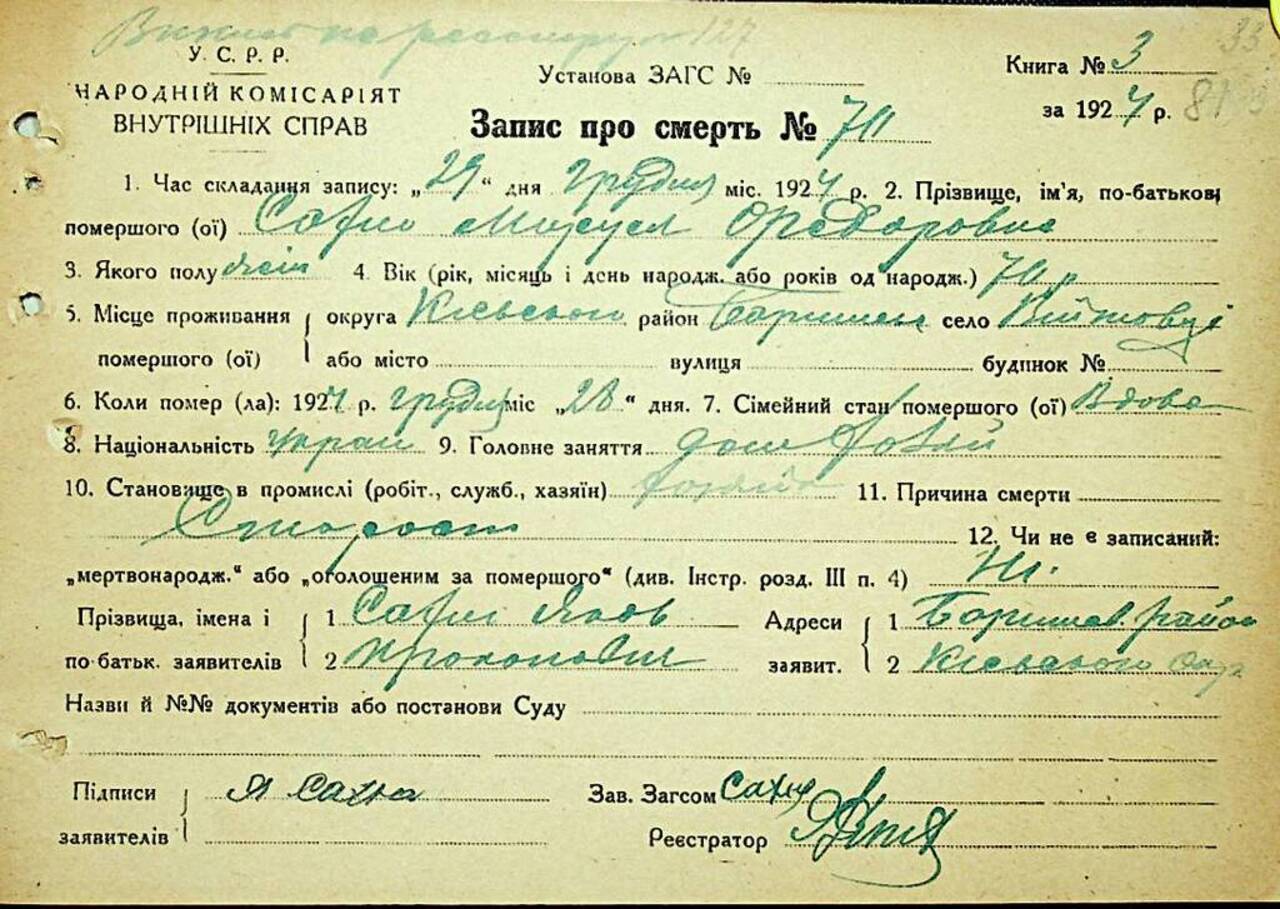 127
33
У. С. Р. Р.
НАРОДНІЙ КОМІСАРІЯТ
ВНУТРІШНІХ СПРАВ
Установа ЗАГС №
Книга № 3
за 1924 р. 81
Запис про смерть № 70
1. Час складання запису: „29“ дня Грудня міс. 1924 р. 2. Прізвище, ім'я, по-батькові
помершого (ої) Сахно
3. Якого полу 4. Вік (рік, місяць і день народж. або років од народж.) 70 р
5. Місце проживання округа Київського район Баришев село Війтовці
помершого (ої) або місто вулиця будинок №
6. Коли помер (ла): 1924 р. Грудня міс „28“ дня. 7. Сімейний стан помершого (ої) Вдова
8. Національність Украй 9. Головне заняття дом хозяй
10. Становище в промислі (робіт., служб., хазяїн) 11. Причина смерти
Старость 12. Чи не є записаний:
„мертвонародж.“ або „оголошеним за помершого“ (див. Інстр. розд. III п. 4) Ні.
Прізвища, імена і 1 Сахно Яков Адреси 1 Баришев. район
по-батьк. заявителів 2 Прокопович заявит. 2 Київського Окр
Назви й №№ документів або постанови Суду
Підписи Я Сахно Зав. Загсом Сахно
заявителів Реєстратор